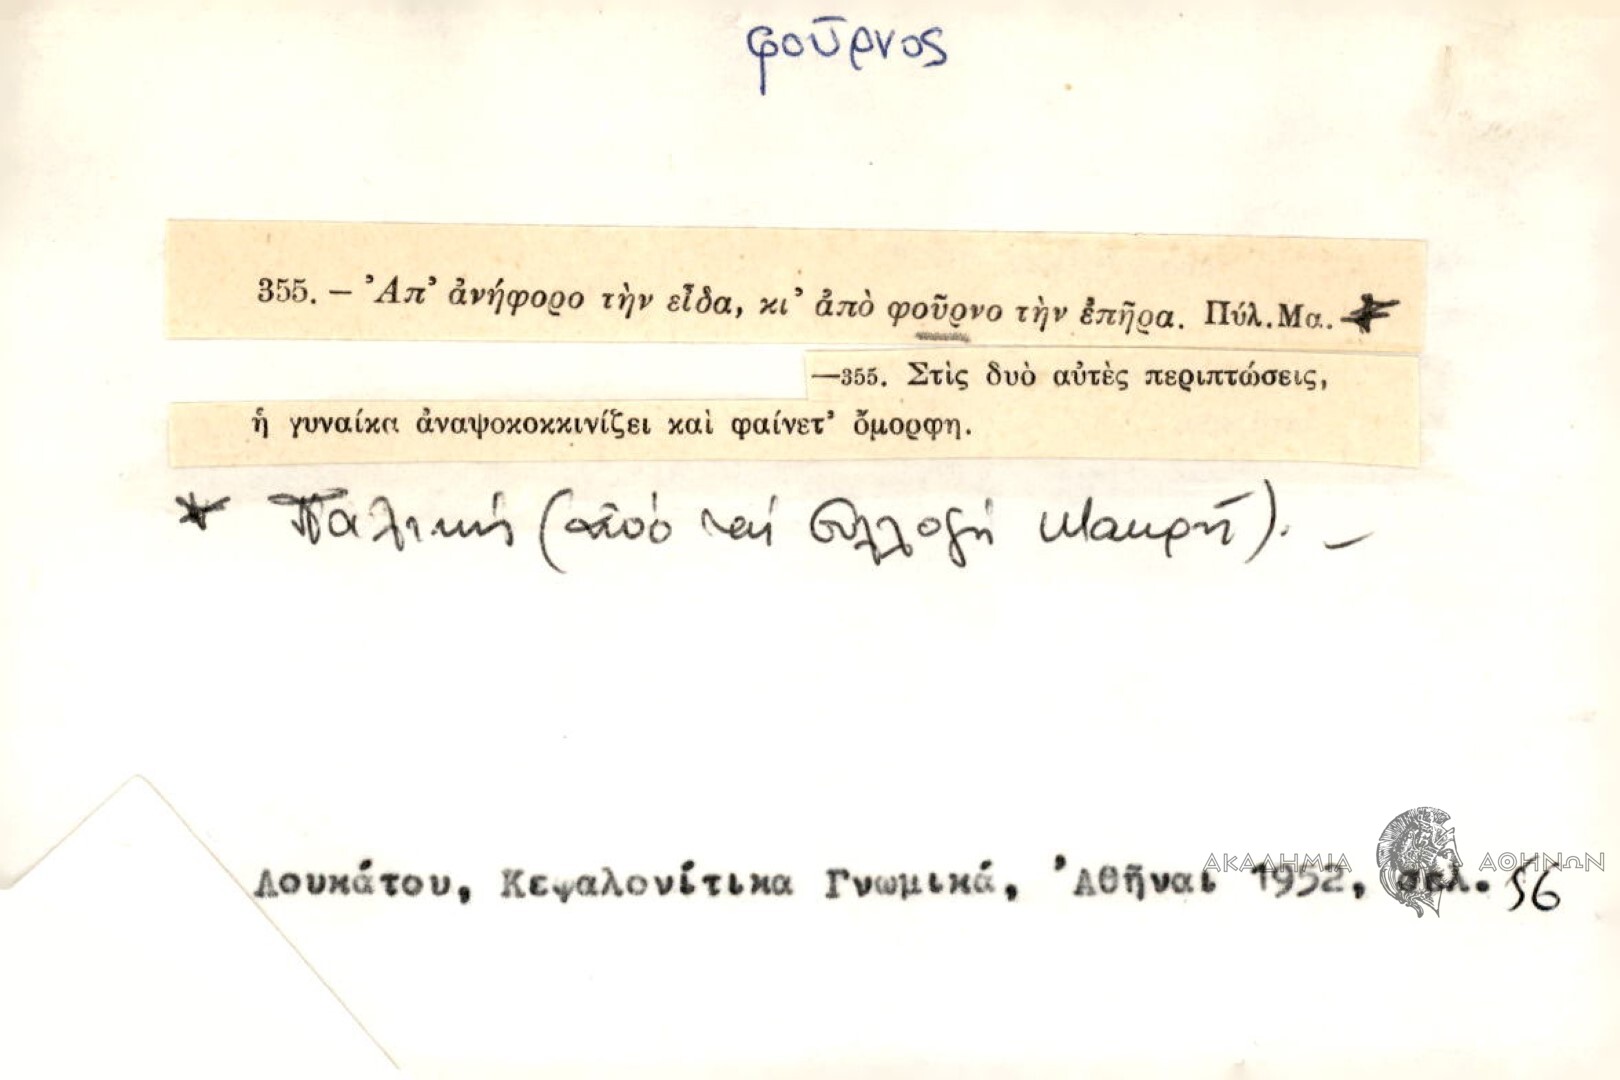 φοῦρνος
355. – Ἀπ' ἀνήφορο τὴν εἶδα, κι' ἀπὸ φοῦρνο τὴν ἐπῆρα. Πύλ. Μα. *
—355. Στὶς δυὸ αὐτὲς περιπτώσεις,
ἡ γυναίκα ἀναψοκοκκινίζει καὶ φαίνετ' ὄμορφη.
* Παλικὴ (ἀπὸ τὴ συλλογὴ Μακρῆ). –
ΑΚΑΔΗΜΙΑ ΑΘΗΝΩΝ
Λουκάτου, Κεφαλονίτικα Γνωμικά, Ἀθῆναι 1952, σελ. 56